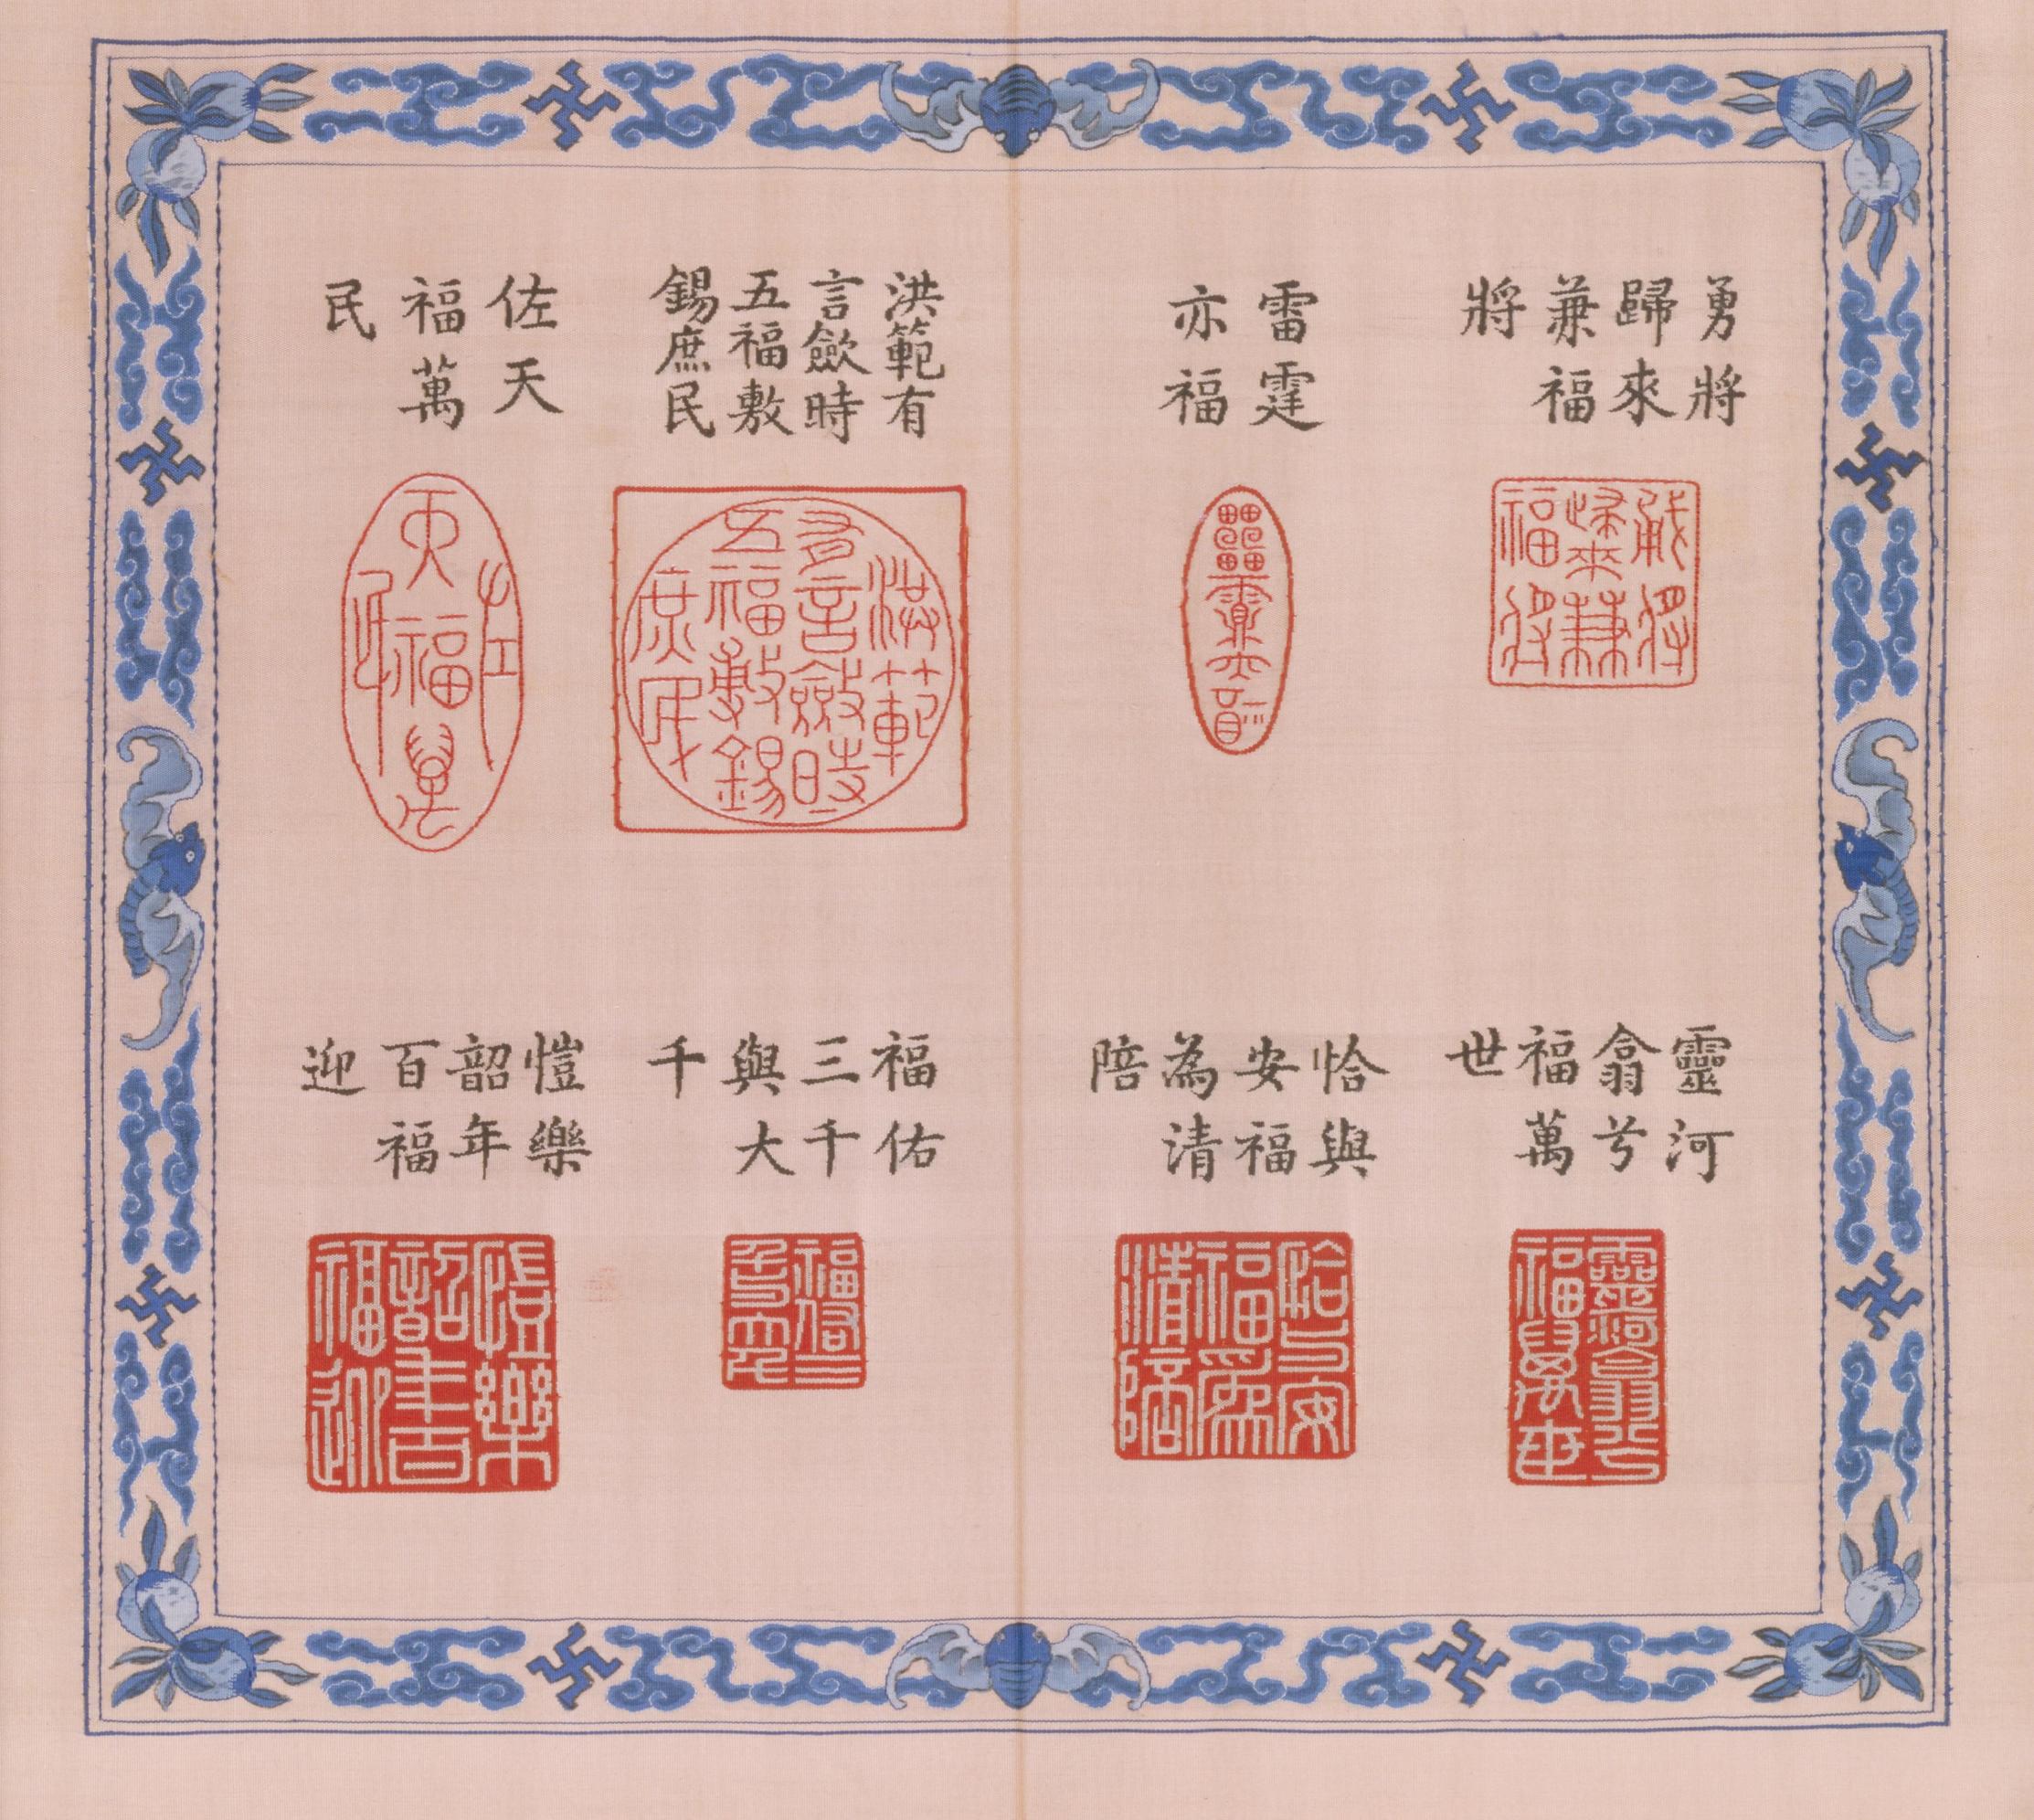 勇將
歸來
兼福
將
雷霆
亦福
洪範有
言斂時
五福敷
錫庶民
佐天
福萬
民
靈河
翕兮
福萬
世
恰與
安福
為清
陪
福佑
三千
與大
千
愷樂
韶年
百福
迎